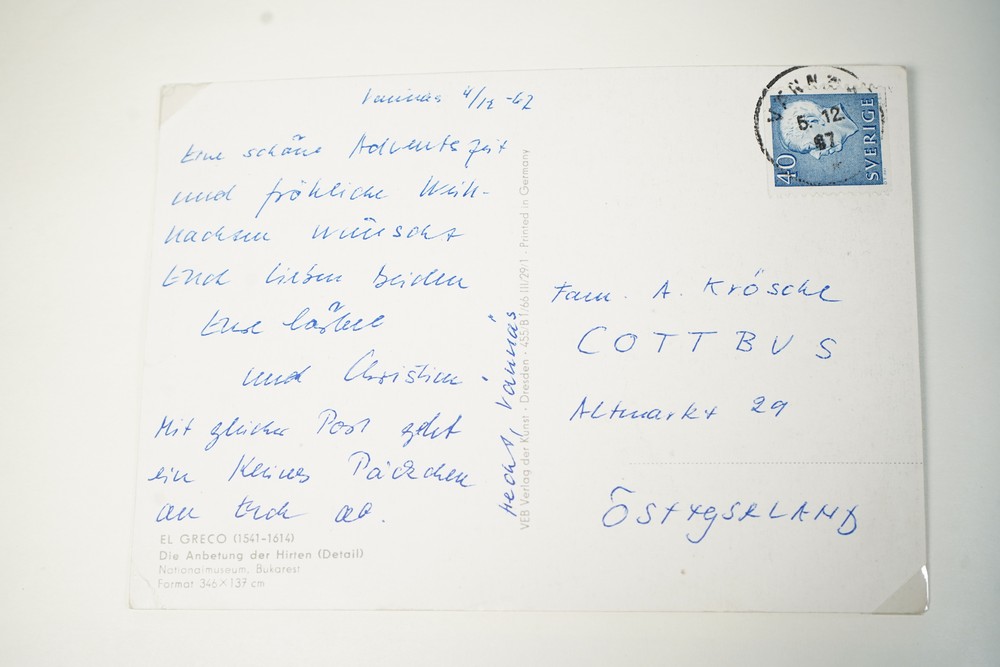 Vännäs 4/12 -67
Eine schöne Adventszeit
und fröhliche Weih-
nachten wünscht
Euch lieben beiden
Eure Bärbel
und Christian.
Mit gleicher Post geht
ein kleines Päckchen
an Euch ab.
EL GRECO (1541-1614)
Die Anbetung der Hirten (Detail)
Nationalmuseum, Bukarest
Format 346×137 cm
Hecht, Vännäs
VEB Verlag der Kunst · Dresden · 455/B 1/66 III/29/1 · Printed in Germany
5.-12.
67
40
SVERIGE
Fam. A. Krösche
COTTBUS
Altmarkt 29
ÖSTTYSKLAND